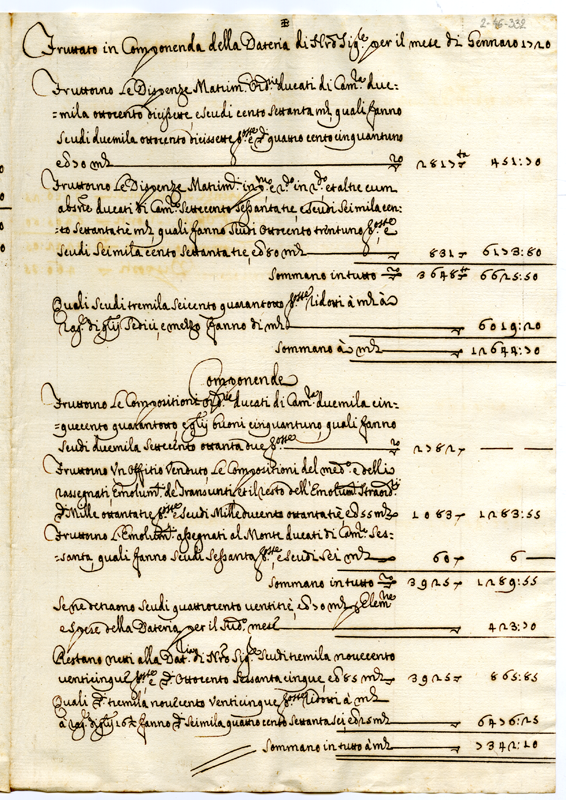 2-46-332
Fruttato in Componenda della Dateria di Nro Sig.re per il mese di Gennaro 1720
Fruttorno Le Dispenze Matrim. ducati di Cam.ra due=
=mila ottocento dicissette, e scudi cento settanta mta quali fanno
scudi duemila ottocento dicissette e quattro cento cinquantuno
e 70 mta 2817 451:70
Fruttorno Le Dispenze Matrim. in et altre cum
ducati di Cam. settecento sessanta tre, e scudi seimila cen=
=to settanta tre mta, quali fanno scudi ottocento trentuno e
scudi seimila cento settanta tre, ed 80 mta 831 6173:80
Sommano in tutto 3648 6625:50
Quali scudi tremila seicento quarantotto ridotti à mta à
rag. di gli sedici, e mezzo fanno di mta 6019:20
Sommano à mta 12644:70
Componende
Fruttorno Le Compositioni ducati di Cam.ra duemila cin=
=quecento quarantotto e gli buoni cinquantuno, quali fanno
scudi duemila settecento ottanta due 2782
Fruttorno Un Offitio Venduto, Le Compositioni del med.o e delli
rassegnati, Emolum.ti de Transunti, et il resto dell'Emolum. Straord.
Mille ottanta tre e scudi Mille ducento ottanta tre ed 55 mta 1083 1283:55
Fruttorno L'Emolum. assegnati al Monte ducati di Cam.ra Ses=
santa, quali fanno scudi sessanta e scudi sei mta 60 6
Sommano in tutto 3925 1289:55
Se ne detraono scudi quattrocento ventitre, ed 70 mta p Elem.ne
e spese della Dateria per il sud.o mese 423:70
Restano netti alla Dat. di Nro Sig.re scudi tremila novecento
venticinque e ottocento sessanta cinque ed 85 mta 3925 865:85
Quali tremila novecento venticinque ridotti à mta
à rag. di gli 16½ fanno seimila quattrocento settanta sei, ed 25 mta 6476:25
Sommano in tutto à mta 7342:10